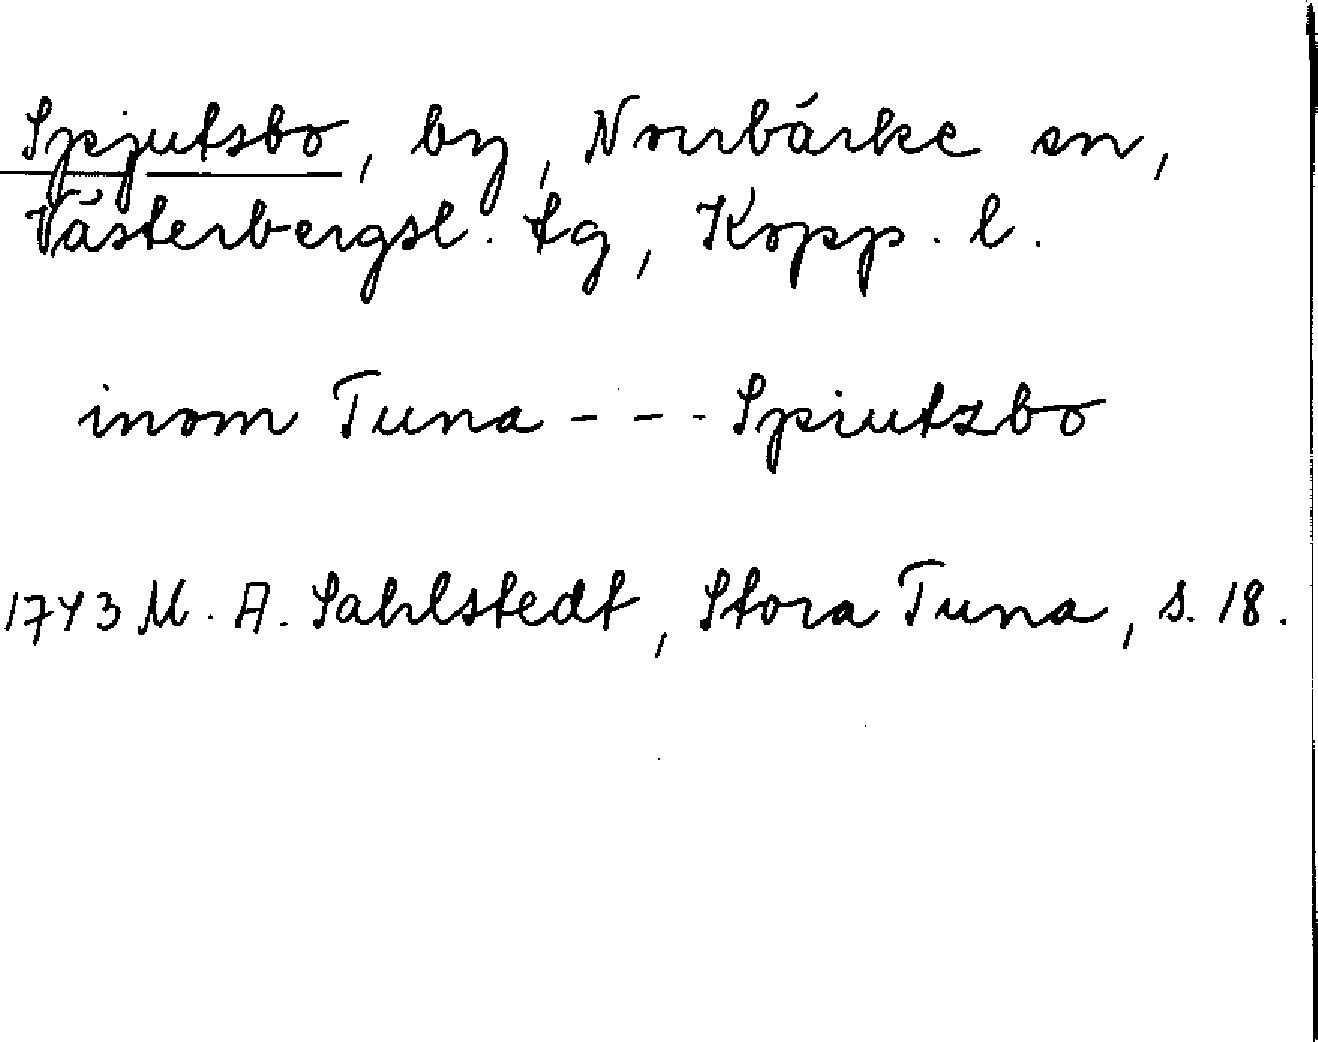 Spjutsbo, by, Norrbärke sn,
Västerbergsl. tg, Kopp. l.
inom Tuna - - - Spiutzbo
1743 M. A. Sahlstedt, Stora Tuna, s. 18.